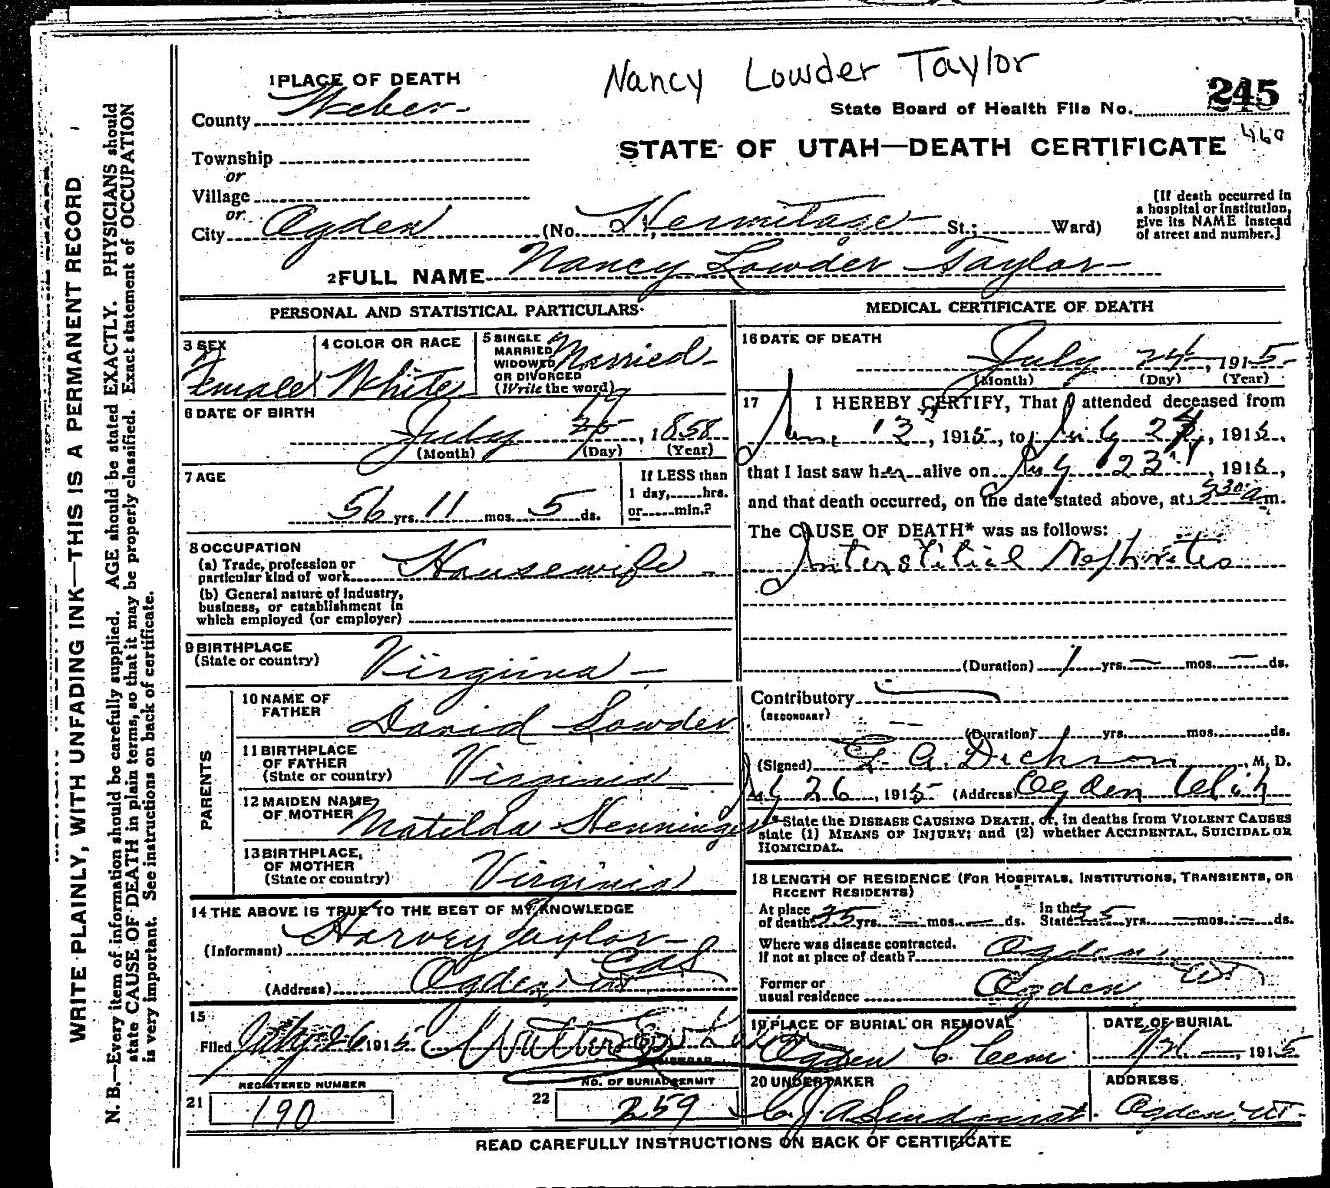 Nancy Lowder Taylor
1 PLACE OF DEATH
County Weber
State Board of Health File No. 245
460
STATE OF UTAH—DEATH CERTIFICATE
Township
or
Village
or
City Ogden (No. Hermitage St.; Ward)
[If death occurred in
a hospital or institution,
give its NAME instead
of street and number.]
2 FULL NAME Nancy Lowder Taylor
PERSONAL AND STATISTICAL PARTICULARS
3 SEX
Female
4 COLOR OR RACE
White
5 SINGLE
MARRIED
WIDOWED
OR DIVORCED
(Write the word)
Married
6 DATE OF BIRTH
July , 1858
(Month) (Day) (Year)
7 AGE
56 yrs. 11 mos. 5 ds.
If LESS than
1 day, hrs.
or min.?
8 OCCUPATION
(a) Trade, profession or
particular kind of work Housewife
(b) General nature of industry,
business, or establishment in
which employed (or employer)
9 BIRTHPLACE
(State or country) Virginia
PARENTS
10 NAME OF
FATHER David Lowder
11 BIRTHPLACE
OF FATHER
(State or country) Virginia
12 MAIDEN NAME
OF MOTHER Matilda Henninger
13 BIRTHPLACE,
OF MOTHER
(State or country) Virginia
14 THE ABOVE IS TRUE TO THE BEST OF MY KNOWLEDGE
(Informant) Harvey Taylor
(Address) Ogden Ut
15
Filed July 26 1915
REGISTRAR
REGISTERED NUMBER
21 190
NO. OF BURIAL PERMIT
22 259
MEDICAL CERTIFICATE OF DEATH
16 DATE OF DEATH
July 24 , 1915
(Month) (Day) (Year)
17 I HEREBY CERTIFY, That I attended deceased from
13 , 1915, to July , 1915,
that I last saw her alive on July 23 , 1915,
and that death occurred, on the date stated above, at 5 30 a m.
The CAUSE OF DEATH* was as follows:
Interstitial Nephritis
(Duration) 1 yrs. — mos. — ds.
Contributory
(SECONDARY)
(Duration) yrs. mos. ds.
(Signed) Dickson , M. D.
July 26 , 1915 (Address) Ogden Utah
*State the DISEASE CAUSING DEATH, or, in deaths from VIOLENT CAUSES
state (1) MEANS OF INJURY; and (2) whether ACCIDENTAL, SUICIDAL OR
HOMICIDAL.
18 LENGTH OF RESIDENCE (FOR HOSPITALS, INSTITUTIONS, TRANSIENTS, OR
RECENT RESIDENTS)
At place
of death 35 yrs. — mos. — ds.
In the
State 35 yrs. — mos. — ds.
Where was disease contracted.
If not at place of death? Ogden
Former or
usual residence Ogden Ut
19 PLACE OF BURIAL OR REMOVAL
Ogden C Cem.
DATE OF BURIAL
, 1915
20 UNDERTAKER
ADDRESS
Ogden UT.
READ CAREFULLY INSTRUCTIONS ON BACK OF CERTIFICATE
WRITE PLAINLY, WITH UNFADING INK—THIS IS A PERMANENT RECORD
N. B.—Every item of information should be carefully supplied. AGE should be stated EXACTLY. PHYSICIANS should
state CAUSE OF DEATH in plain terms, so that it may be properly classified. Exact statement of OCCUPATION
is very important. See instructions on back of certificate.